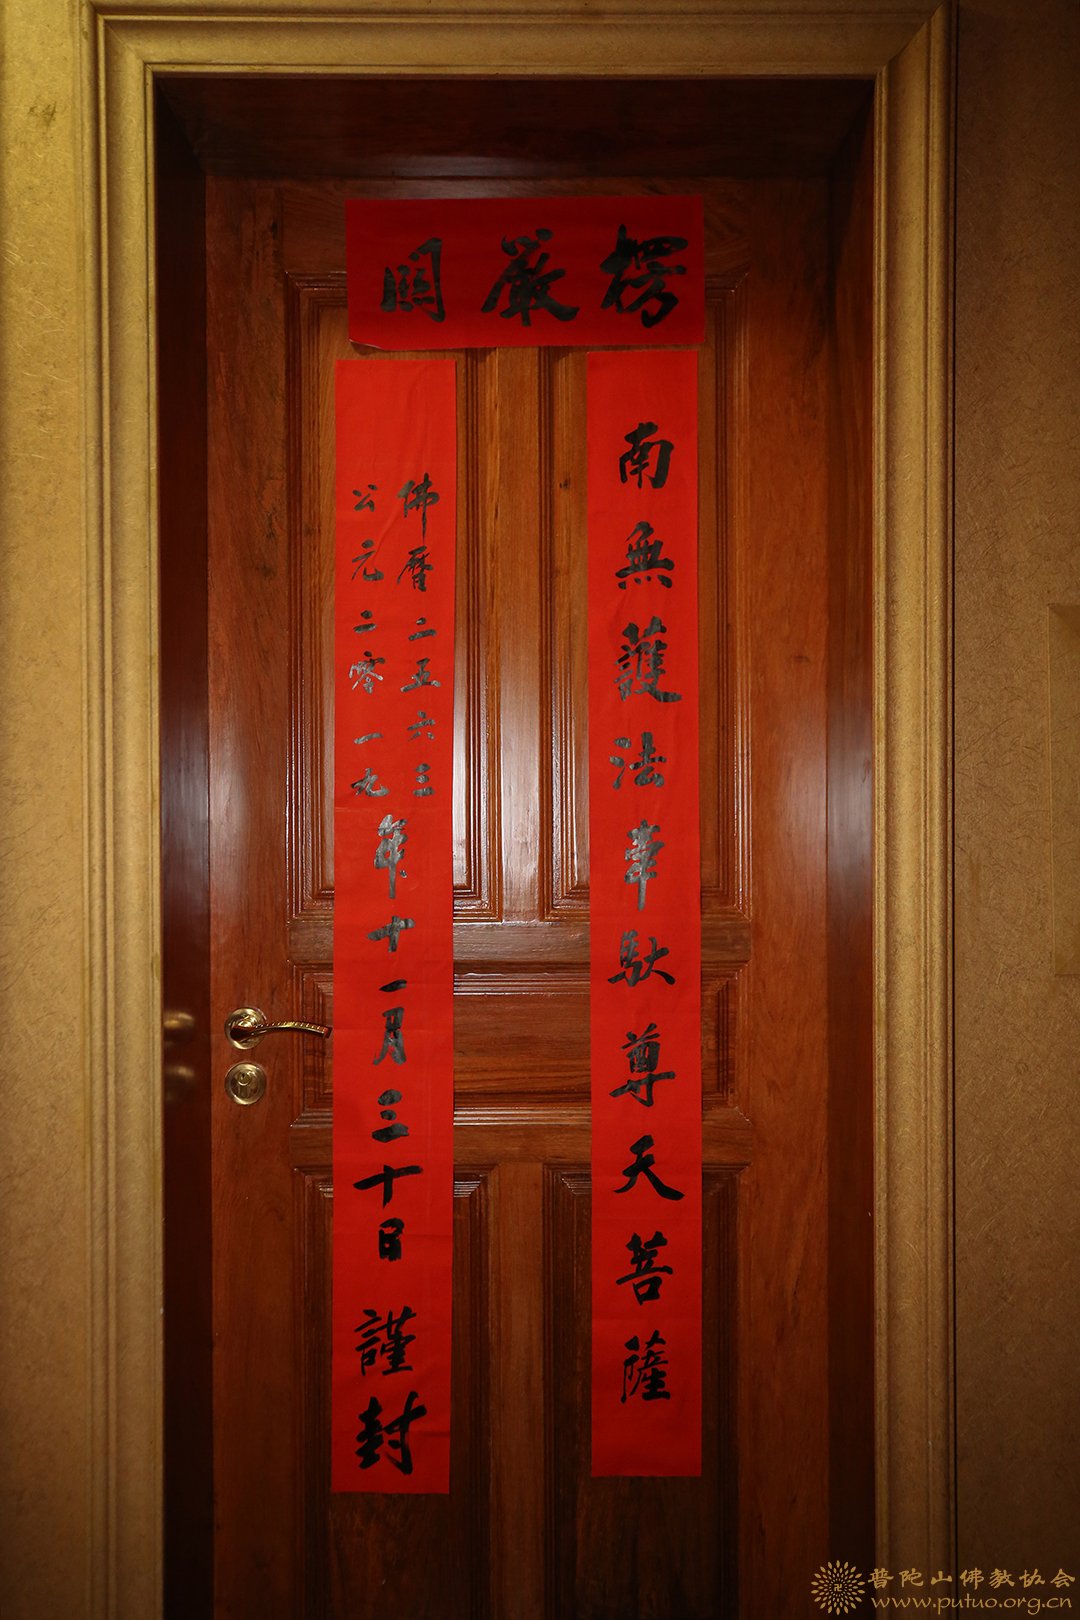 楞嚴關
南無護法韋馱尊天菩薩
佛曆二五六三
公元二零一九
年十一月三十日 謹封
普陀山佛教协会
www.putuo.org.cn